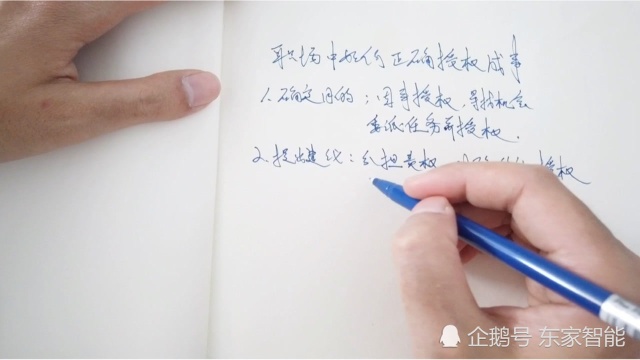 职场中如何正确授权成事
1.确定目的：因事授权，寻找机会
委派任务而授权.
2.提出建议：分担责权 授权
企鹅号 东家智能